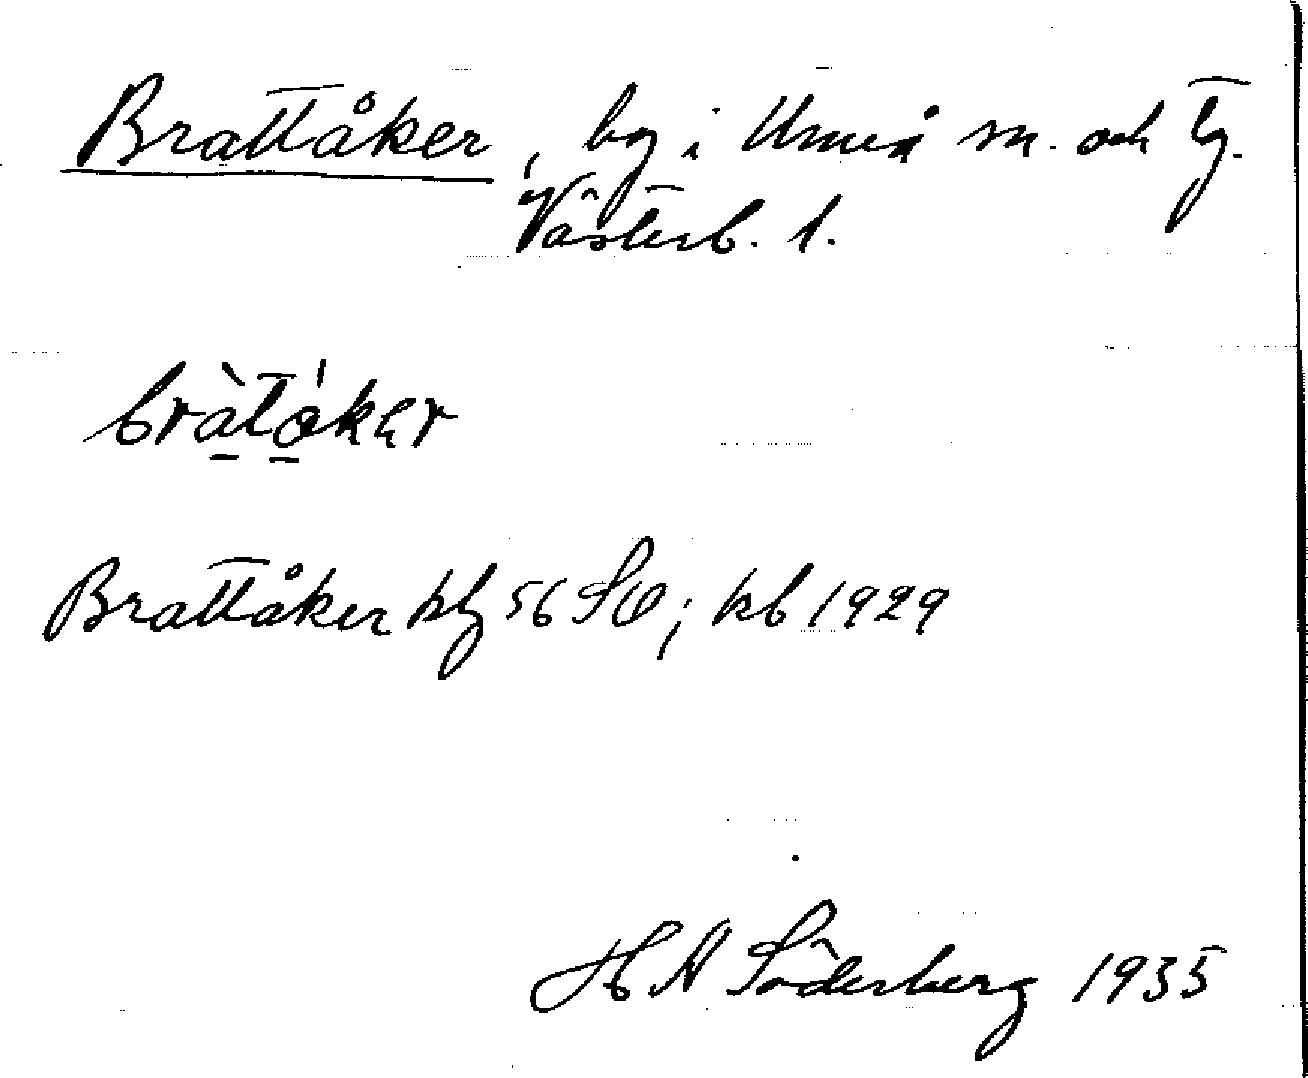 Brattåker, by i Umeå sn. och tg.
Västerb. l.
bràtåkər
Brattåker kbg 56 SO; kb 1929
H A Söderberg 1935